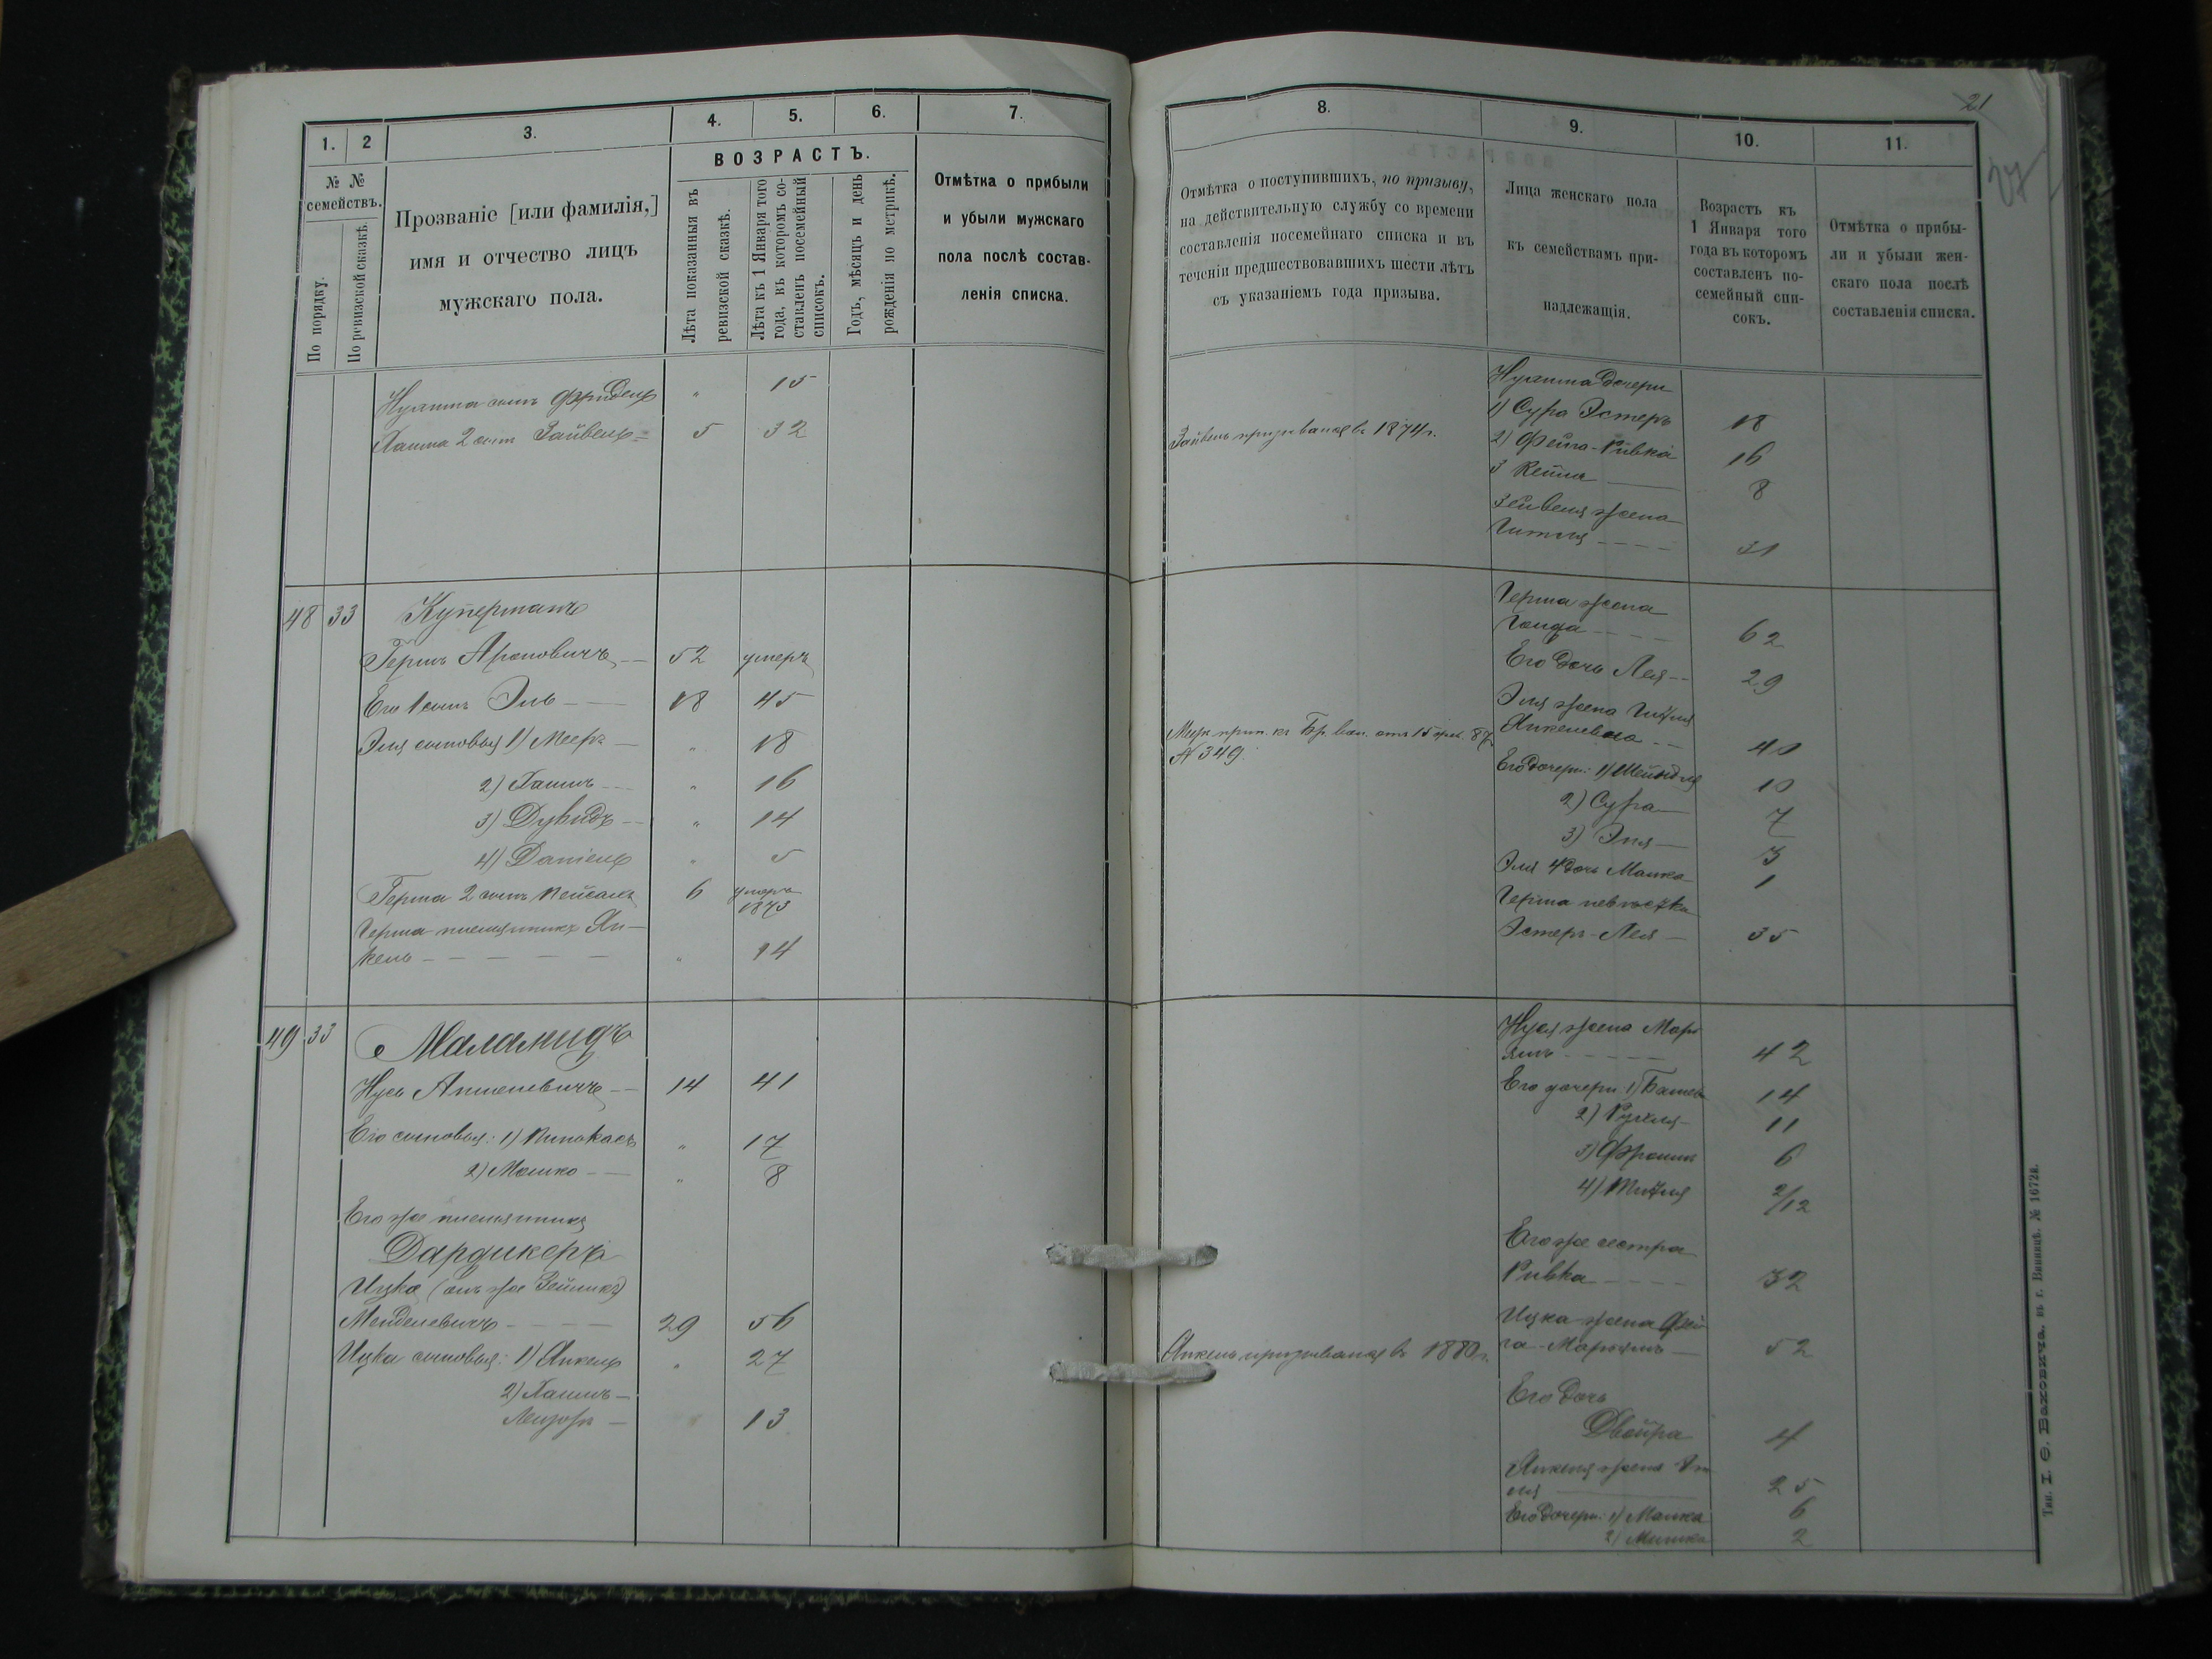 1. 2 3. 4. 5. 6. 7.
№ № семействъ.
По порядку.
По ревизской сказкѣ.
Прозваніе [или фамилія,]
имя и отчество лицъ
мужскаго пола.
ВОЗРАСТЪ.
Лѣта показанныя въ
ревизской сказкѣ.
Лѣта къ 1 Января того
года, въ которомъ со-
ставленъ посемейный
списокъ.
Годъ, мѣсяцъ и день
рожденія по метрикѣ.
Отмѣтка о прибыли
и убыли мужскаго
пола послѣ состав-
ленія списка.
сынъ Фридель " 15
Хаима 2 сынъ Зайвель 5 32
48 33 Куперманъ
Гершъ Ароновичъ 52 умеръ
Его 1 сынъ Эль 18 45
Эля сыновья 1) Мееръ " 18
2) Хаимъ " 16
3) Дувидъ " 14
4) Даніель " 5
Герша 2 сынъ Пейсахъ 6 умеръ
1873
Герша племянникъ Ян-
кель " 14
49 33 Маламидъ
Нусь Аншелевичъ 14 41
Его сыновья: 1) Пинхасъ " 17
2) Мошко " 8
Его же племянникъ
Дардикеръ
Ицка (онъ же Зейликъ)
Менделевичъ 29 56
Ицка сыновья: 1) Янкель " 27
2) Хаимъ
Лейзоръ 13
21
8. 9. 10. 11.
Отмѣтка о поступившихъ, по призыву,
на дѣйствительную службу со времени
составленія посемейнаго списка и въ
теченіи предшествовавшихъ шести лѣтъ
съ указаніемъ года призыва.
Лица женскаго пола
къ семействамъ при-
надлежащія.
Возрастъ къ
1 Января того
года въ которомъ
составленъ по-
семейный спи-
сокъ.
Отмѣтка о прибы-
ли и убыли жен-
скаго пола послѣ
составленія списка.
дочери
1) Сура Эстеръ 18
Зайвель призывался въ 1874 г.
2) Фейга-Ривка 16
3 Кейла 8
Зейвеля жена
Гитля 31
Герша жена
Голда 62
Его дочь Лея 29
Эля жена
Янкелевна 40
15 87
№ 349
Его дочери: 1) Шейндля 10
2) Сура 7
3) Эня 3
Эля 4 дочь Малка 1
Герша невѣстка
Эстеръ-Лея 35
Нуся жена Марі-
ямъ 42
Его дочери 1) Башева 14
2) Рухля 11
3) Фроимъ 6
4) 2/12
Его же сестра
Ривка 32
Ицка жена Фей-
га-Марьямъ 52
Янкель призывался въ 1880 г.
Его дочь
Двойра 4
Янкеля жена Эт-
ля 25
Его дочери: 1) Малка 6
2) 2
Тип. І. Ѳ. Ваховича, въ г. Винницѣ. № 1672я.